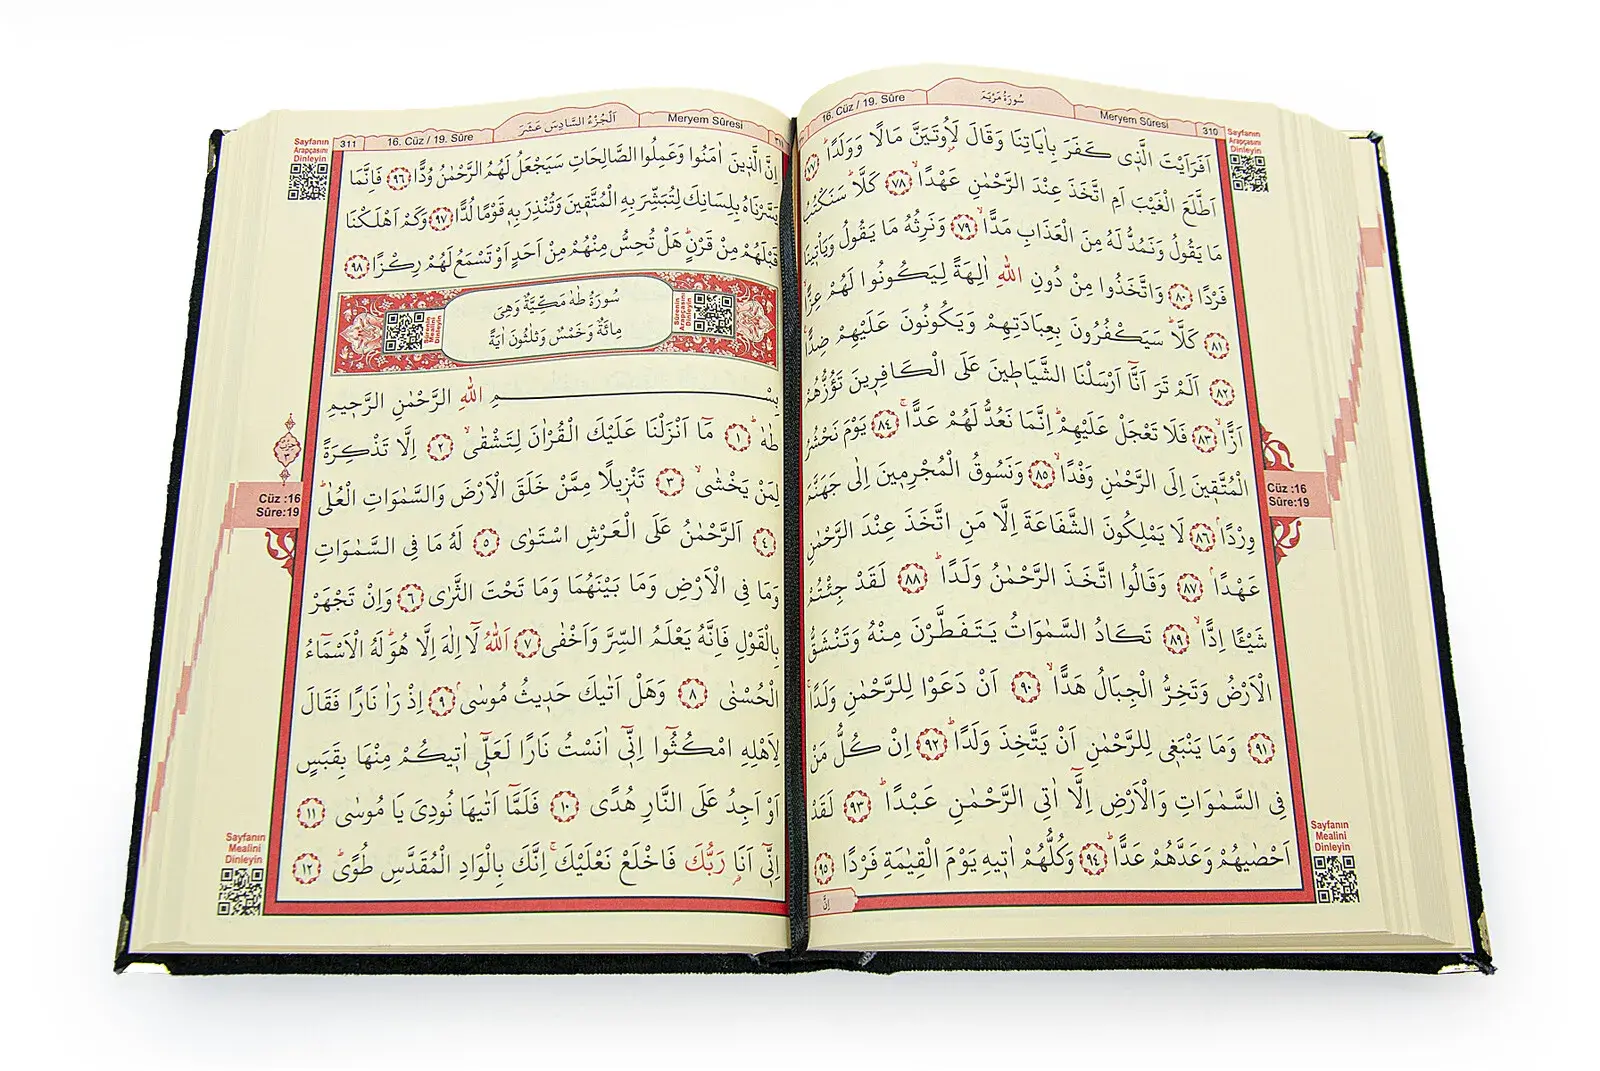 310
Meryem Sûresi
سُورَةُ مَرْيَمَ
16. Cüz / 19. Sûre
Sayfanın
Arapçasını
Dinleyin
اَفَرَاَيْتَ الَّذ۪ي كَفَرَ بِاٰيَاتِنَا وَقَالَ لَاُو۫تَيَنَّ مَالًا وَوَلَدًاۜ ﴿٧٧﴾
اَطَّلَعَ الْغَيْبَ اَمِ اتَّخَذَ عِنْدَ الرَّحْمٰنِ عَهْدًاۙ ﴿٧٨﴾ كَلَّاۜ سَنَكْتُبُ
مَا يَقُولُ وَنَمُدُّ لَهُ مِنَ الْعَذَابِ مَدًّاۙ ﴿٧٩﴾ وَنَرِثُهُ مَا يَقُولُ وَيَأْت۪ينَا
فَرْدًا ﴿٨٠﴾ وَاتَّخَذُوا مِنْ دُونِ اللّٰهِ اٰلِهَةً لِيَكُونُوا لَهُمْ عِزًّاۙ
﴿٨١﴾ كَلَّاۜ سَيَكْفُرُونَ بِعِبَادَتِهِمْ وَيَكُونُونَ عَلَيْهِمْ ضِدًّا۟
﴿٨٢﴾ اَلَمْ تَرَ اَنَّٓا اَرْسَلْنَا الشَّيَاط۪ينَ عَلَى الْكَافِر۪ينَ تَؤُزُّهُمْ
اَزًّاۙ ﴿٨٣﴾ فَلَا تَعْجَلْ عَلَيْهِمْۜ اِنَّمَا نَعُدُّ لَهُمْ عَدًّاۚ ﴿٨٤﴾ يَوْمَ نَحْشُرُ
الْمُتَّق۪ينَ اِلَى الرَّحْمٰنِ وَفْدًاۙ ﴿٨٥﴾ وَنَسُوقُ الْمُجْرِم۪ينَ اِلٰى جَهَنَّمَ
وِرْدًاۢ ﴿٨٦﴾ لَا يَمْلِكُونَ الشَّفَاعَةَ اِلَّا مَنِ اتَّخَذَ عِنْدَ الرَّحْمٰنِ
عَهْدًاۢ ﴿٨٧﴾ وَقَالُوا اتَّخَذَ الرَّحْمٰنُ وَلَدًاۜ ﴿٨٨﴾ لَقَدْ جِئْتُمْ
شَيْـًٔا اِدًّاۙ ﴿٨٩﴾ تَكَادُ السَّمٰوَاتُ يَتَفَطَّرْنَ مِنْهُ وَتَنْشَقُّ
الْاَرْضُ وَتَخِرُّ الْجِبَالُ هَدًّاۙ ﴿٩٠﴾ اَنْ دَعَوْا لِلرَّحْمٰنِ وَلَدًاۚ
﴿٩١﴾ وَمَا يَنْبَغ۪ي لِلرَّحْمٰنِ اَنْ يَتَّخِذَ وَلَدًاۜ ﴿٩٢﴾ اِنْ كُلُّ مَنْ
فِي السَّمٰوَاتِ وَالْاَرْضِ اِلَّٓا اٰتِي الرَّحْمٰنِ عَبْدًاۜ ﴿٩٣﴾ لَقَدْ
اَحْصٰيهُمْ وَعَدَّهُمْ عَدًّاۜ ﴿٩٤﴾ وَكُلُّهُمْ اٰت۪يهِ يَوْمَ الْقِيٰمَةِ فَرْدًا ﴿٩٥﴾
اِنَّ
Cüz :16
Sûre:19
Sayfanın
Mealini
Dinleyin
Meryem Sûresi
اَلْجُزْءُ السَّادِسَ عَشَرَ
16. Cüz / 19. Sûre
311
Sayfanın
Arapçasını
Dinleyin
اِنَّ الَّذ۪ينَ اٰمَنُوا وَعَمِلُوا الصَّالِحَاتِ سَيَجْعَلُ لَهُمُ الرَّحْمٰنُ وُدًّا ﴿٩٦﴾ فَاِنَّمَا
يَسَّرْنَاهُ بِلِسَانِكَ لِتُبَشِّرَ بِهِ الْمُتَّق۪ينَ وَتُنْذِرَ بِه۪ قَوْمًا لُدًّا ﴿٩٧﴾ وَكَمْ اَهْلَكْنَا
قَبْلَهُمْ مِنْ قَرْنٍۜ هَلْ تُحِسُّ مِنْهُمْ مِنْ اَحَدٍ اَوْ تَسْمَعُ لَهُمْ رِكْزًا ﴿٩٨﴾
سُورَةُ طٰهٰ مَكِّيَّةٌ وَهِيَ
مِائَةٌ وَخَمْسٌ وَثَلٰثُونَ اٰيَةً
Sûrenin
Arapçasını
Dinleyin
Sûrenin
Mealini
Dinleyin
بِسْمِ اللّٰهِ الرَّحْمٰنِ الرَّح۪يمِ
طٰهٰۜ ﴿١﴾ مَٓا اَنْزَلْنَا عَلَيْكَ الْقُرْاٰنَ لِتَشْقٰىۙ ﴿٢﴾ اِلَّا تَذْكِرَةً
لِمَنْ يَخْشٰىۙ ﴿٣﴾ تَنْز۪يلًا مِمَّنْ خَلَقَ الْاَرْضَ وَالسَّمٰوَاتِ الْعُلٰىۜ
﴿٤﴾ اَلرَّحْمٰنُ عَلَى الْعَرْشِ اسْتَوٰى ﴿٥﴾ لَهُ مَا فِي السَّمٰوَاتِ
وَمَا فِي الْاَرْضِ وَمَا بَيْنَهُمَا وَمَا تَحْتَ الثَّرٰى ﴿٦﴾ وَاِنْ تَجْهَرْ
بِالْقَوْلِ فَاِنَّهُ يَعْلَمُ السِّرَّ وَاَخْفٰى ﴿٧﴾ اَللّٰهُ لَٓا اِلٰهَ اِلَّا هُوَۜ لَهُ الْاَسْمَٓاءُ
الْحُسْنٰى ﴿٨﴾ وَهَلْ اَتٰيكَ حَد۪يثُ مُوسٰىۢ ﴿٩﴾ اِذْ رَاٰ نَارًا فَقَالَ
لِاَهْلِهِ امْكُثُٓوا اِنّ۪ٓي اٰنَسْتُ نَارًا لَعَلّ۪ٓي اٰت۪يكُمْ مِنْهَا بِقَبَسٍ
اَوْ اَجِدُ عَلَى النَّارِ هُدًى ﴿١٠﴾ فَلَمَّٓا اَتٰيهَا نُودِيَ يَا مُوسٰى ﴿١١﴾
اِنّ۪ٓي اَنَا۬ رَبُّكَ فَاخْلَعْ نَعْلَيْكَۚ اِنَّكَ بِالْوَادِ الْمُقَدَّسِ طُوًىۜ ﴿١٢﴾
Cüz :16
Sûre:19
Sayfanın
Mealini
Dinleyin